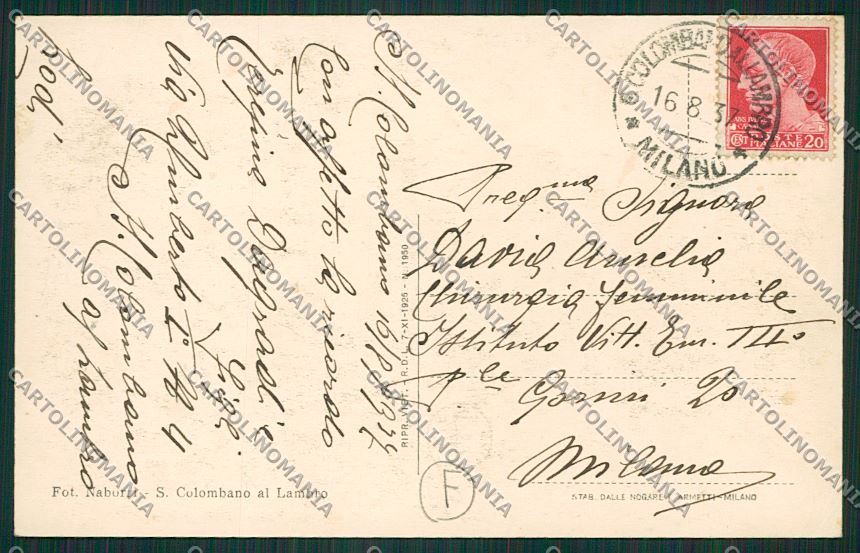 S. Colombano 16/8/937
Con affetto la ricordo
Via Umberto I° N 4
S. Colombano
al Lambro
Lodi
Fot. Naborri - S. Colombano al Lambro
RIPR. VIET. - R.D.L. 7-XI-1925 - N. 1950
S. COLOMBANO AL LAMBRO
16.8.37
* MILANO *
POSTE
ITALIANE 20
CENT
Preg.ma Signora
David Amelia
Chirurgia femminile
Istituto Vitt. Em. III°
P.le Gorini 20
Milano
F
STAB. DALLE NOGARE E ARMETTI - MILANO
CARTOLINOMANIA